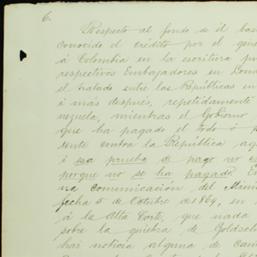 6.
Respecto al fondo se il bas
conocido el crédito por el gene
á Colombia en la escritura pu
respectivos Embajadores en Lond
el tratado entre las Repúblicas en
i mas despues, repetidamente
nezuela, mientras el Gobierno
que ha pagado el todo ó p
sente contra la República aq
i esa prueba de pago no e
porque no se ha pagado. E
na comunicación del Minis
fecha 5 de Octubre de 1864, en
á la Alta Corte, que nada
sobre la quiebra de Goldsch
hai noticia alguna de